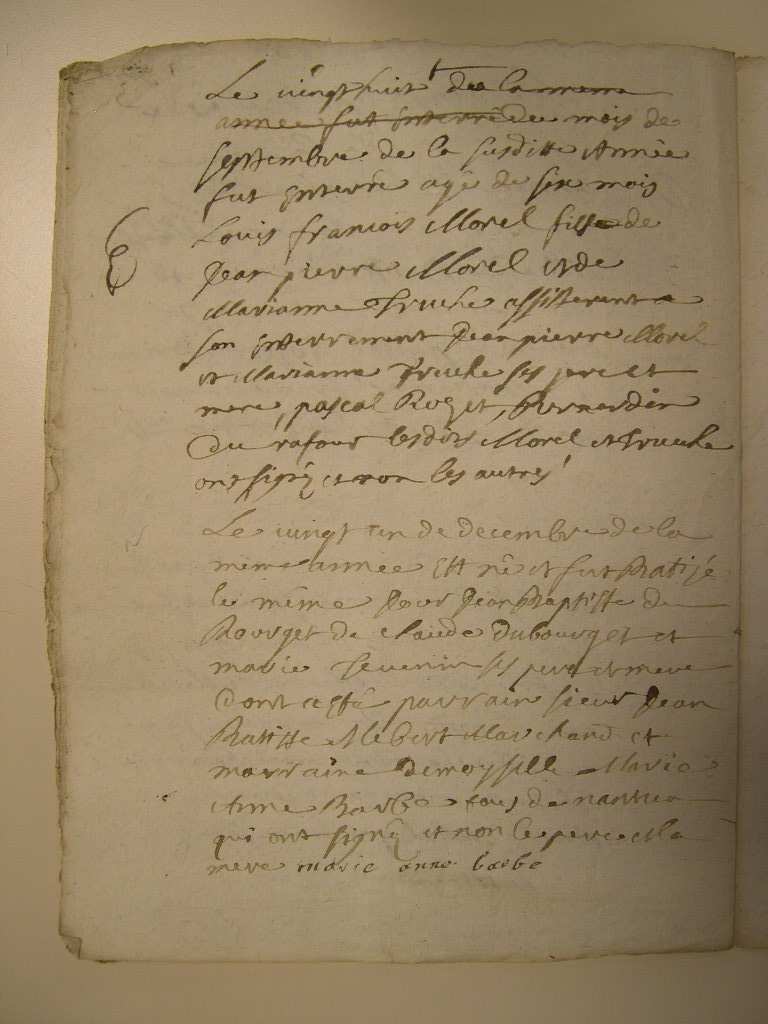 Le vingt huit de la meme
année fut enterré du mois de
septembre de la susditte Année
fut enterré agé de six mois
Louis francois Morel fils de
Jean pierre Morel et de
Marianne Truche assisterent a
son enterrement Jean pierre Morel
et Marianne Truche ses pere et
mere, pascal Rozet, bernardin
du rafour lesdits Morel et Truche
ont signé et non les autres
Le vingt un de decembre de la
même année est né et fut Batisé
le même Jour Jean Baptiste du
Bourget de claude dubourget et
marie Thevenin ses pere et mere
dont a esté parrain sieur Jean
Batiste Marchand et
marraine demoyselle Marie
Anne Barbe tous de nantua
qui ont signé et non le pere et la
mere marie anne barbe